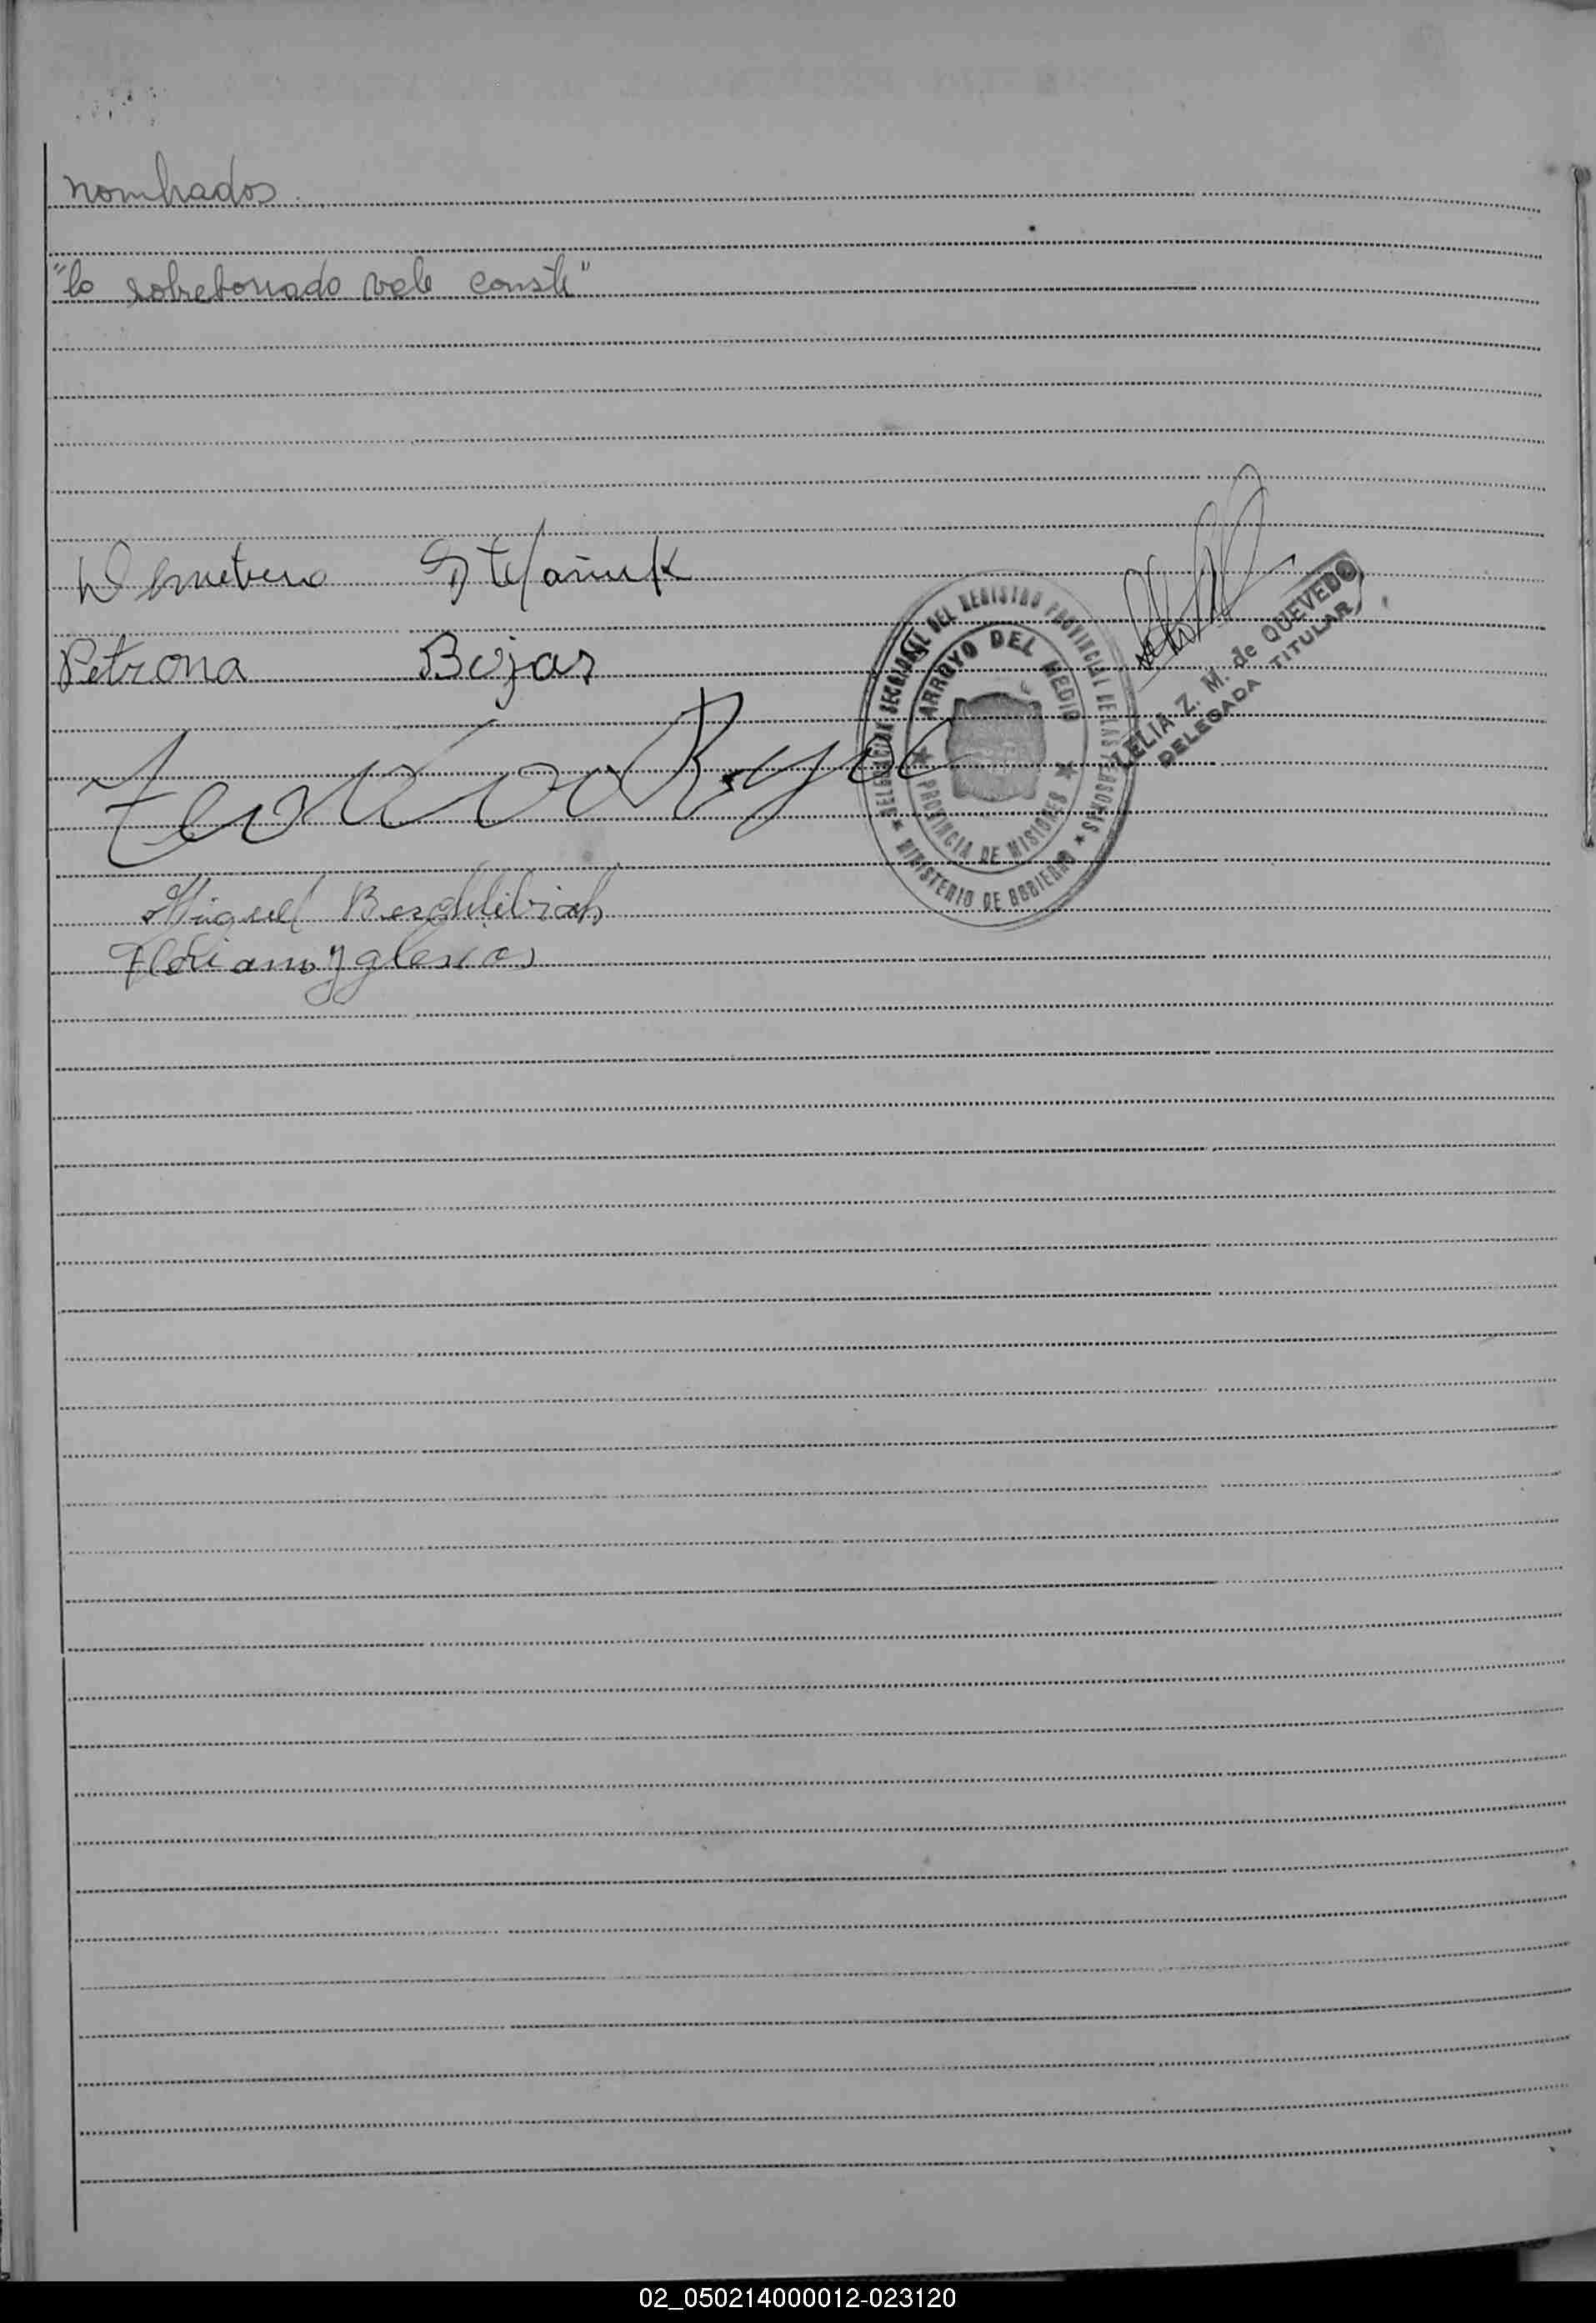 nombrados.
"lo sobreborrado vale conste"
Demeterio Stefaniuk
Petrona Bojas
DELEGACION SECCIONAL DEL REGISTRO PROVINCIAL DE LAS PERSONAS
ARROYO DEL MEDIO
PROVINCIA DE MISIONES
MINISTERIO DE GOBIERNO
LELIA Z. M. de QUEVEDO
DELEGADA TITULAR
Miguel
Floriano Yglesias
02_050214000012-023120